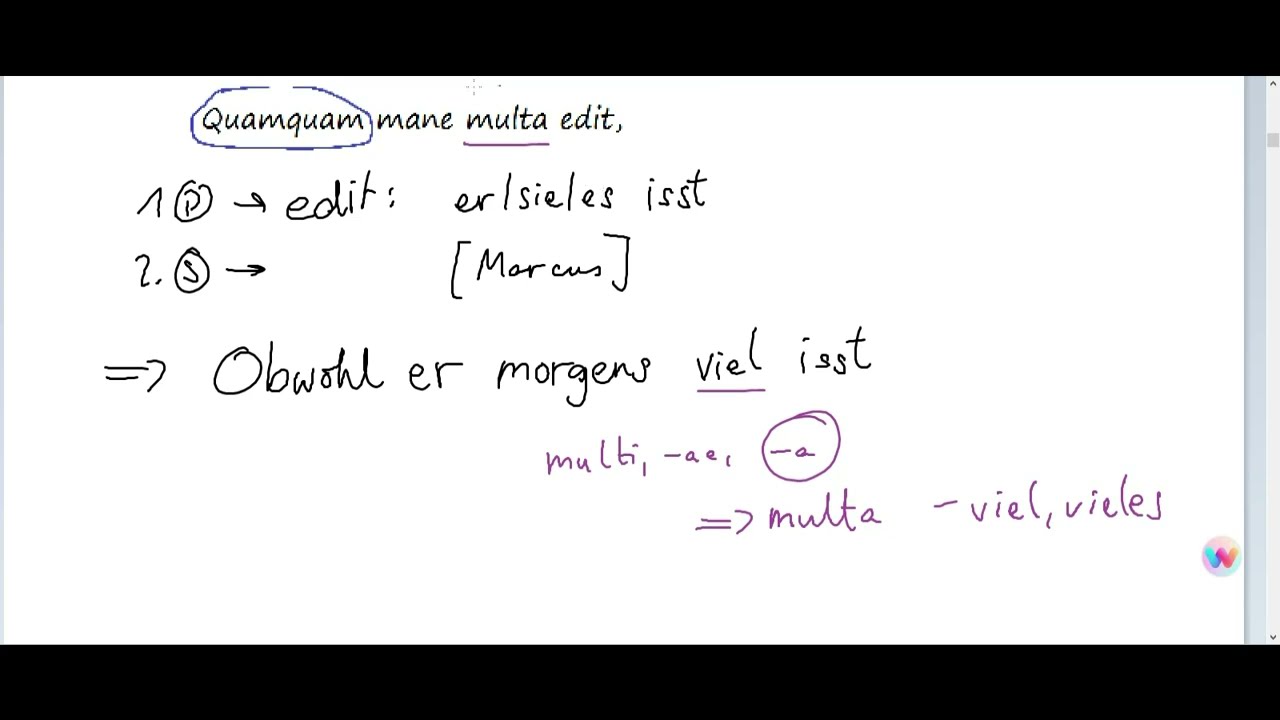 Quamquam mane multa edit,
1 P → edit: er/sie/es isst
2. S → [Marcus]
=> Obwohl er morgens viel isst
multi, -ae, -a
=> multa - viel, vieles